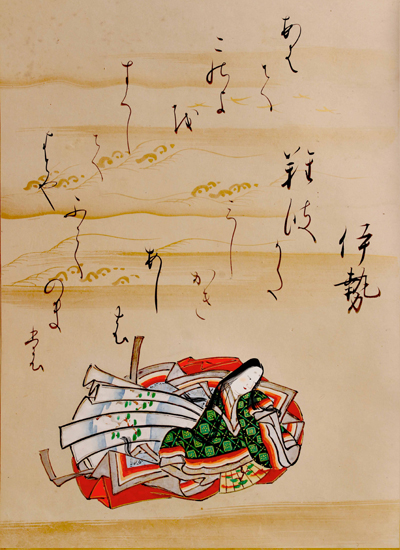 伊勢
難波かた
みし
かき
あし
の
ふし
のま
も
あは
て
このよ
を
すくし
て
よとや